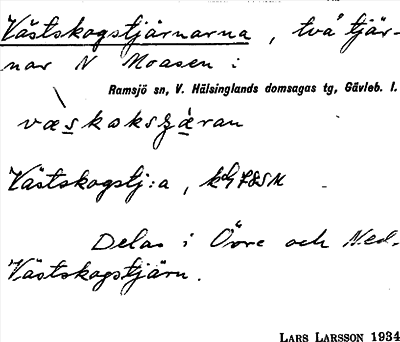 Västskogstjärnarna, två tjär-
nar N Moasen:
Ramsjö sn, V. Hälsinglands domsagas tg, Gävleb. l.
væskakszæran
Västskogstj:a,
Delas i Övre och Ned.
Västskogstjärn.
LARS LARSSON 1934